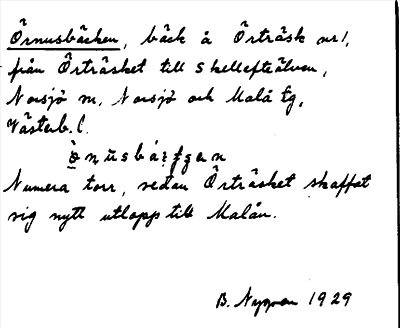 Örnusbäcken, bäck å Örträsk nr 1,
från Örträsket till Skellefteälven,
Norsjö sn, Norsjö och Malå tg,
Västerb. l.
Numera torr, sedan Örträsket skaffat
sig nytt utlopp till Malån.
B. 1929